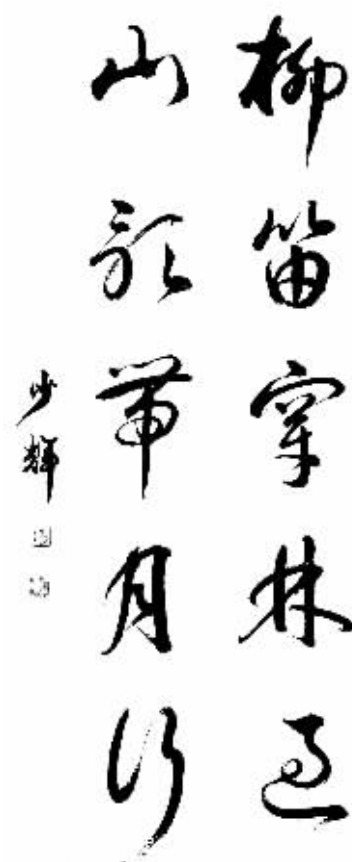 柳笛穿林过
山歌带月行
少辉